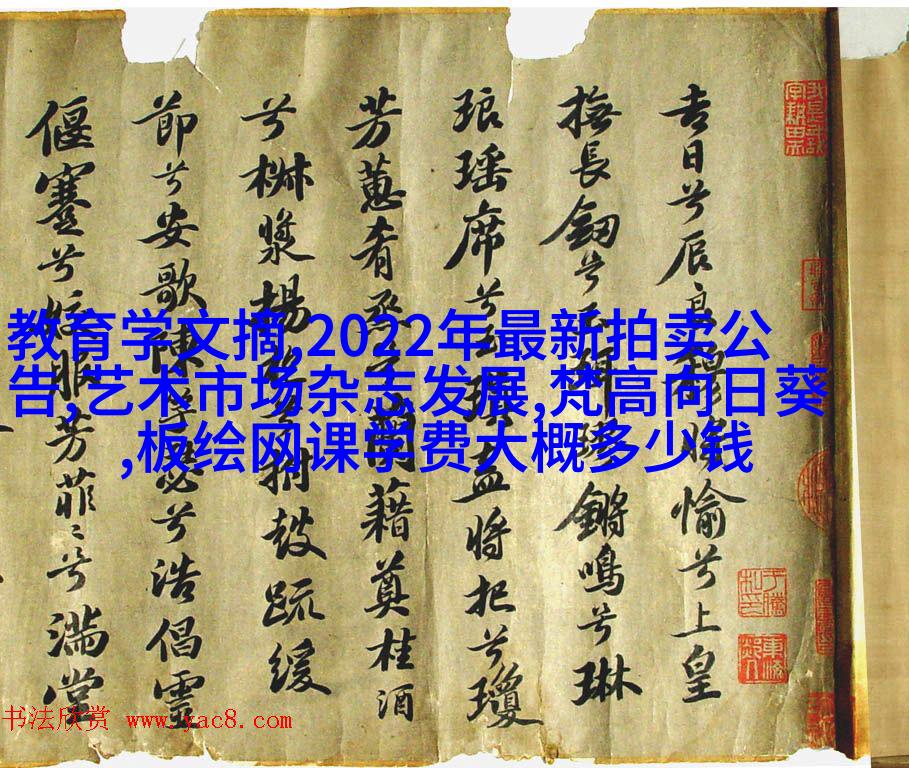 吉日兮辰良穆將愉兮上皇
撫長釼兮玉珥璆鏘鳴兮琳
琅瑶席兮玉瑱盍將把兮瓊
芳蕙肴烝兮蘭藉奠桂酒
兮椒漿揚枹兮拊鼓疏緩
節兮安歌陳竽瑟兮浩倡靈
偃蹇兮姣服芳菲々兮滿堂
教育学文摘,2022年最新拍卖公
告,艺术市场杂志发展,梵高向日葵
,板绘网课学费大概多少钱
书法欣赏 www.yac8.com